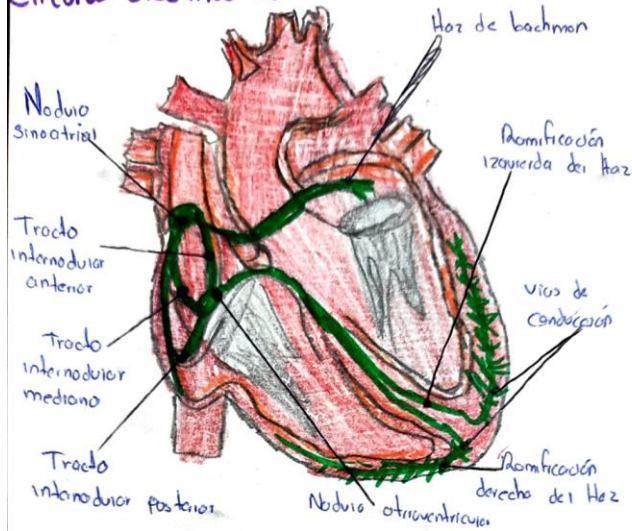 Haz de bachman
Nodulo
sinoatrial
Ramificación
izquierda del Haz
Tracto
internodular
anterior
vias de
conducción
Tracto
internodular
mediano
Tracto
internodular posterior
Nodulo atrioventricular
Ramificación
derecha del Haz